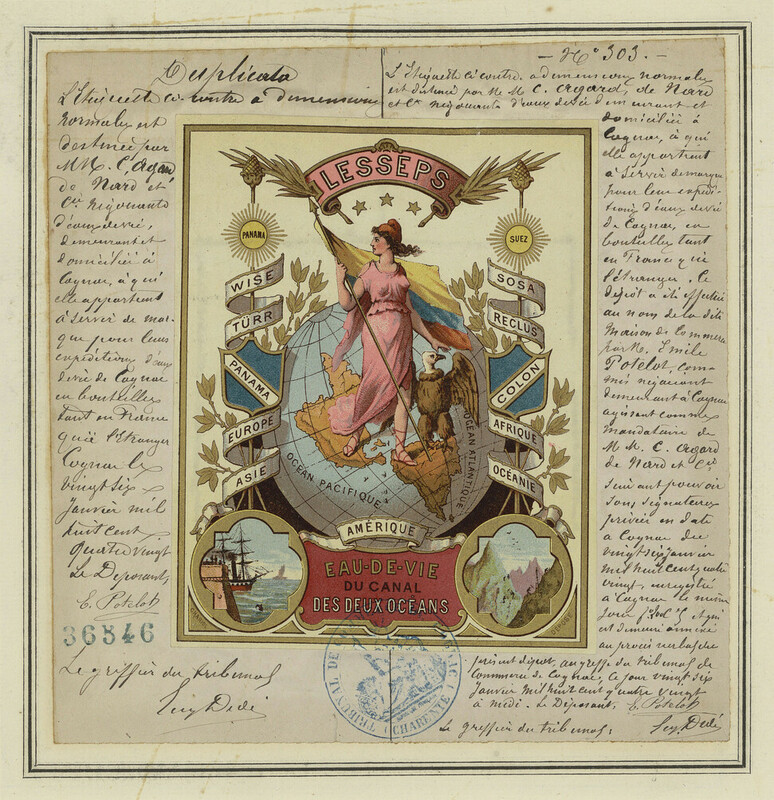 Duplicata
L'Etiquette ci-contre a dimensions
normales est
destinée par
MM. C. Agard
de Nard et
Cie Négociants
d'eaux-de-vie,
demeurant et
domiciliés à
Cognac, à qui
elle appartient
à servir de mar-
que pour leurs
expéditions d'eaux
de vie de Cognac
en bouteilles
tant en France
qu'à l'Etranger
Cognac le
vingt six
Janvier mil
huit cent
quatre vingt
Le Déposant,
E. Potelot
36846
Le greffier du tribunal
N° 303.
L'Etiquette ci contre a dimensions normales
est destinée par MM. C. Agard, de Nard
et Cie Négociants d'eaux de vie demeurant et
domiciliés à
Cognac, à qui
elle appartient
à servir de marque
pour leur expédi-
tions d'eaux de vie
de Cognac, en
bouteilles tant
en France qu'à
l'étranger. Ce
dépôt a été effectué
au nom de la dite
Maison de Commerce
par M. Emile
Potelot, com-
mis négociant
demeurant à Cognac
agissant comme
mandataire de
MM. C. Agard
de Nard et Cie
suivant pouvoir
sous signatures
privées en date
à Cognac du
vingt six janvier
mil huit cent quatre
vingt, enregistré
à Cognac le même
jour
est demeuré annexé
au procès verbal de
présent dépôt, au greffe du tribunal de
Commerce de Cognac, ce jour vingt six
Janvier mil huit cent quatre vingt
à midi. Le Déposant, E. Potelot
Le greffier du tribunal,
LESSEPS
PANAMA
SUEZ
WISE
SOSA
TÜRR
RECLUS
PANAMA
COLON
EUROPE
AFRIQUE
ASIE
OCÉANIE
OCEAN PACIFIQUE
OCEAN ATLANTIQUE
AMÉRIQUE
EAU-DE-VIE
DU CANAL
DES DEUX OCEANS
TRIBUNAL DE
CHARENTE